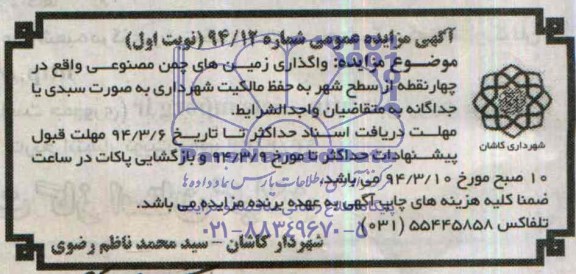 آگهی مزایده عمومی شماره ۹۴/۱۲ (نوبت اول)
موضوع مزایده: واگذاری زمین های چمن مصنوعی واقع در
چهارنقطه از سطح شهر به حفظ مالکیت شهرداری به صورت سبدی یا
جداگانه به متقاضیان واجدالشرایط.
مهلت دریافت اسناد حداکثر تا تاریخ ۹۴/۳/۶ مهلت قبول
پیشنهادات حداکثر تا مورخ ۹۴/۳/۹ و بازگشایی پاکات در ساعت
۱۰ صبح مورخ ۹۴/۳/۱۰ می باشد.
ضمنا کلیه هزینه های چاپ آگهی به عهده برنده مزایده می باشد.
تلفاکس ۵۵۴۴۵۸۵۸ (۰۳۱)
شهردار کاشان – سید محمد ناظم رضوی
شهرداری کاشان
۰۲۱-۸۸۳۴۹۶۷۰-۵